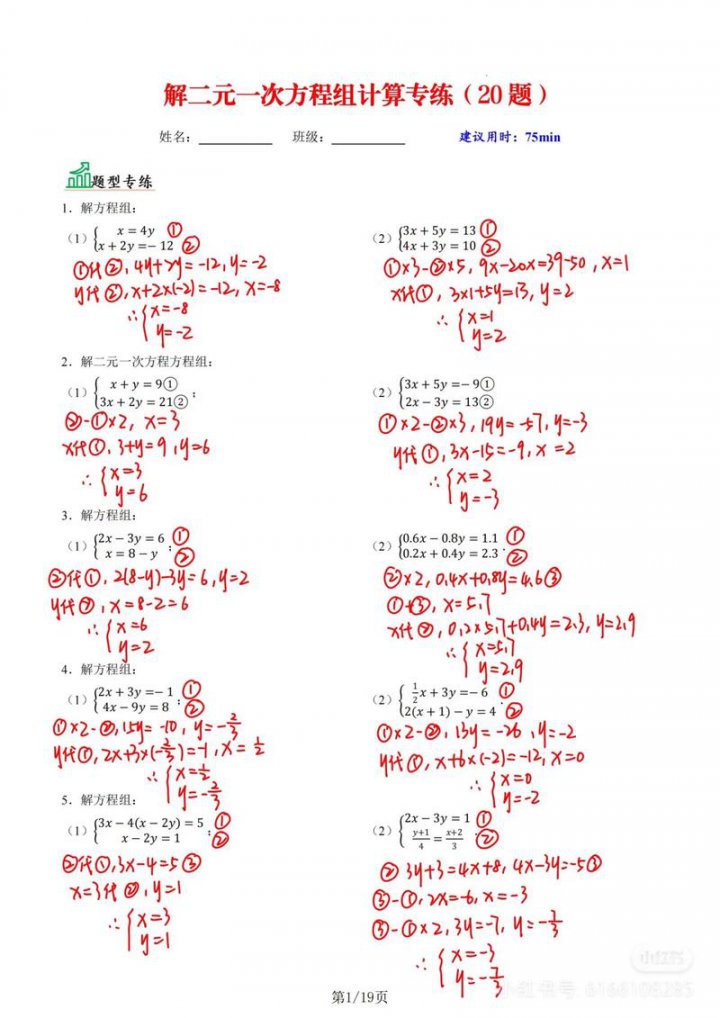 解二元一次方程组计算专练（20 题）
姓名：__________ 班级：__________ 建议用时：75min
题型专练
1．解方程组：
（1）{x = 4y ①
x + 2y = − 12 ②
①代②, 4y+2y=-12, y=-2
y代②, x+2×(-2)=-12, x=-8
∴{x=-8
y=-2
（2）{3x + 5y = 13 ①
4x + 3y = 10 ②
①×3-②×5, 9x-20x=39-50, x=1
x代①, 3×1+5y=13, y=2
∴{x=1
y=2
2．解二元一次方程方程组：
（1）{x + y = 9①
3x + 2y = 21② ；
②-①×2, x=3
x代①, 3+y=9, y=6
∴{x=3
y=6
（2）{3x + 5y = − 9①
2x − 3y = 13②
①×2-②×3, 19y=-57, y=-3
y代①, 3x-15=-9, x=2
∴{x=2
y=-3
3．解方程组：
（1）{2x − 3y = 6 ①
x = 8 − y ； ②
②代①, 2(8-y)-3y=6, y=2
y代②, x=8-2=6
∴{x=6
y=2
（2）{0.6x − 0.8y = 1.1 ①
0.2x + 0.4y = 2.3 . ②
②×2, 0.4x+0.8y=4.6③
①+③, x=5.7
x代②, 0.2×5.7+0.4y=2.3, y=2.9
∴{x=5.7
y=2.9
4．解方程组：
（1）{2x + 3y = − 1 ①
4x − 9y = 8 ； ②
①×2-②, 15y=-10, y=-2/3
y代①, 2x+3×(-2/3)=-1, x=1/2
∴{x=1/2
y=-2/3
（2）{1/2x + 3y = − 6 ①
2(x + 1) − y = 4 . ②
①×2-②, 13y=-26, y=-2
y代①, x+6×(-2)=-12, x=0
∴{x=0
y=-2
5．解方程组：
（1）{3x − 4(x − 2y) = 5 ①
x − 2y = 1 ； ②
②代①, 3x-4=5③
x=3代②, y=1
∴{x=3
y=1
（2）{2x − 3y = 1 ①
y+1/4 = x+2/3 . ②
② 3y+3=4x+8, 4x-3y=-5③
③-①, 2x=-6, x=-3
③-①×2, 3y=-7, y=-7/3
∴{x=-3
y=-7/3
小红书
小红书号
第1/19页